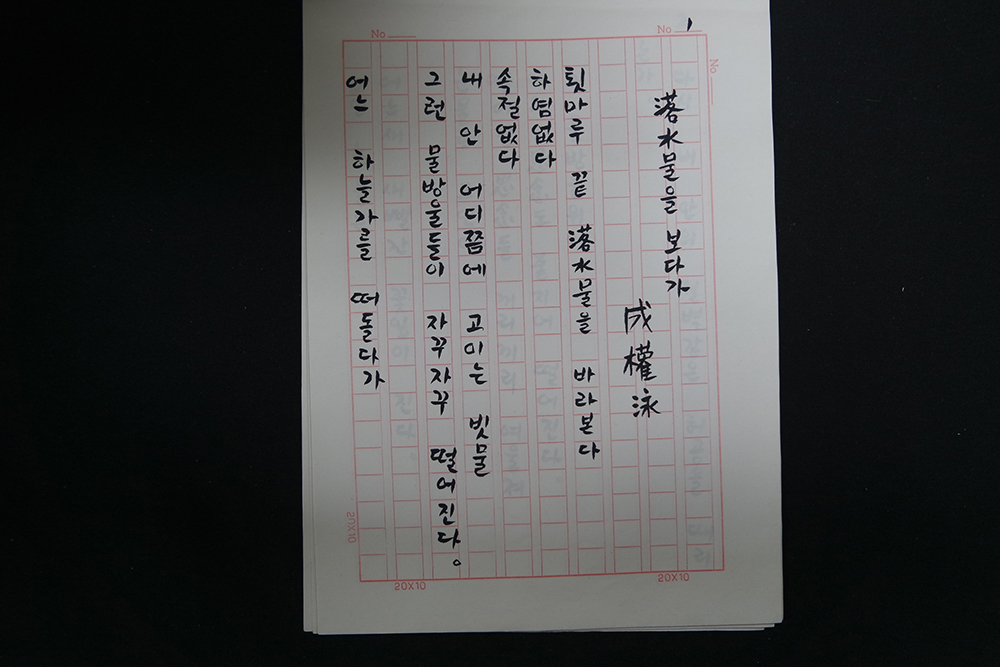 No 1
No
No
落水물을 보다가
成權泳
툇마루 끝 落水물을 바라본다
하염없다
속절없다
내 안 어디쯤에 고이는 빗물
그런 물방울들이 자꾸자꾸 떨어진다。
어느 하늘가를 떠돌다가
20X10
20X10
20X10